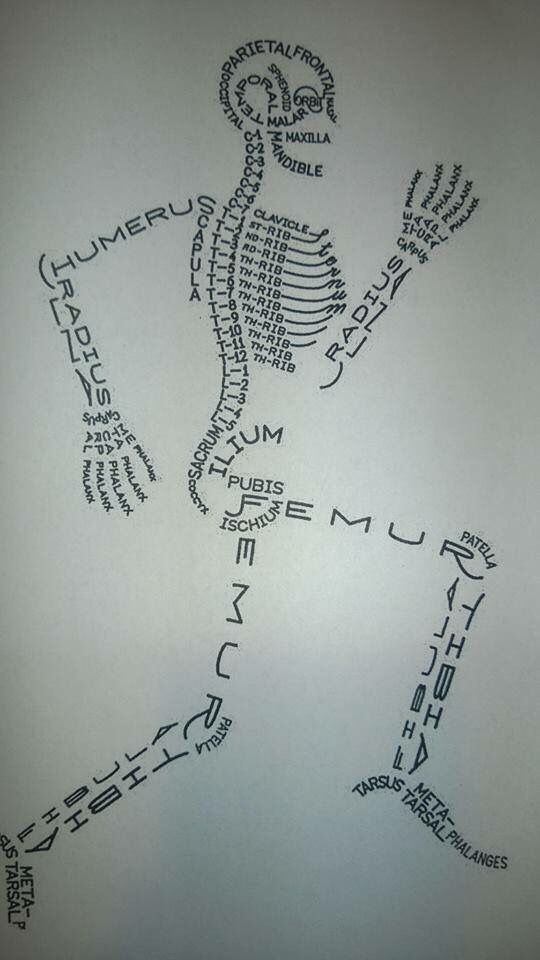 PARIETAL
FRONTAL
OCCIPITAL
TEMPORAL
SPHENOID
ORBIT
NASAL
MALAR
MAXILLA
MANDIBLE
C-1
C-2
C-3
C-4
C-5
C-6
C-7
CLAVICLE
SCAPULA
HUMERUS
sternum
T-1
T-2
T-3
T-4
T-5
T-6
T-7
T-8
T-9
T-10
T-11
T-12
ST-RIB
ND-RIB
RD-RIB
TH-RIB
TH-RIB
TH-RIB
TH-RIB
TH-RIB
TH-RIB
TH-RIB
TH-RIB
TH-RIB
L-1
L-2
L-3
L-4
L-5
RADIUS
ULNA
CARPUS
META
CARPAL
PHALANX
PHALANX
PHALANX
PHALANX
PHALANX
RADIUS
ULNA
CARPUS
META
CARPAL
PHALANX
PHALANX
PHALANX
PHALANX
PHALANX
SACRUM
COCCYX
ILIUM
PUBIS
ISCHIUM
FEMUR
PATELLA
TIBIA
FIBULA
TARSUS
META-
TARSAL
PHALANGES
FEMUR
PATELLA
TIBIA
FIBULA
SUS
META-
TARSAL
P